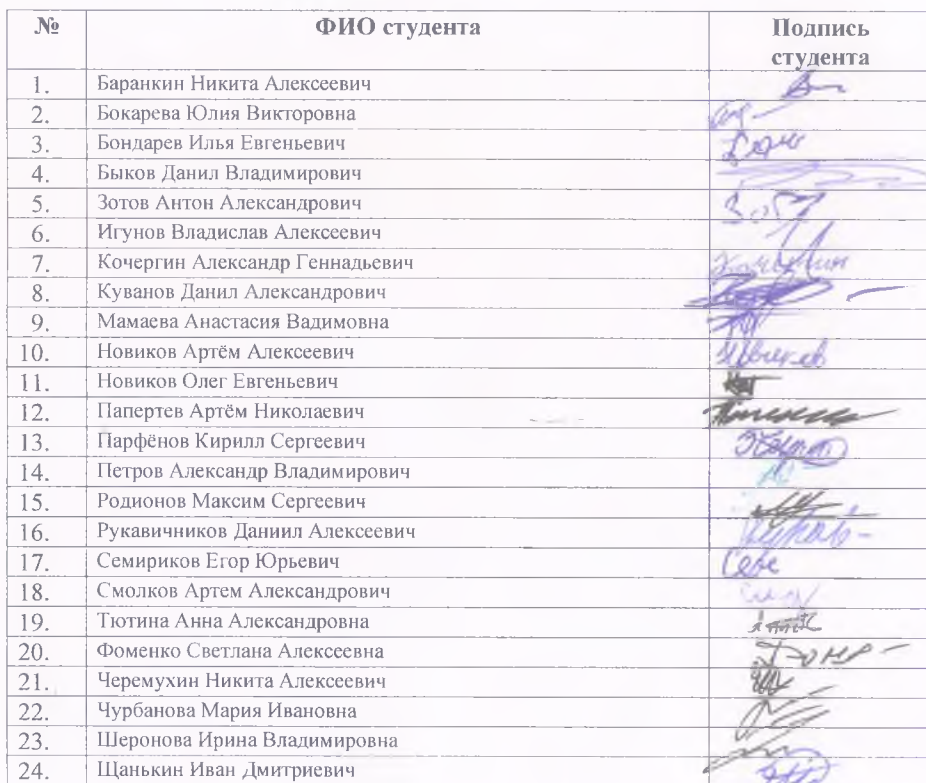 № ФИО студента Подпись
студента
1. Баранкин Никита Алексеевич
2. Бокарева Юлия Викторовна
3. Бондарев Илья Евгеньевич
4. Быков Данил Владимирович
5. Зотов Антон Александрович
6. Игунов Владислав Алексеевич
7. Кочергин Александр Геннадьевич
8. Куванов Данил Александрович
9. Мамаева Анастасия Вадимовна
10. Новиков Артём Алексеевич
11. Новиков Олег Евгеньевич
12. Папертев Артём Николаевич
13. Парфёнов Кирилл Сергеевич
14. Петров Александр Владимирович
15. Родионов Максим Сергеевич
16. Рукавичников Даниил Алексеевич
17. Семириков Егор Юрьевич
18. Смолков Артем Александрович
19. Тютина Анна Александровна
20. Фоменко Светлана Алексеевна
21. Черемухин Никита Алексеевич
22. Чурбанова Мария Ивановна
23. Шеронова Ирина Владимировна
24. Щанькин Иван Дмитриевич